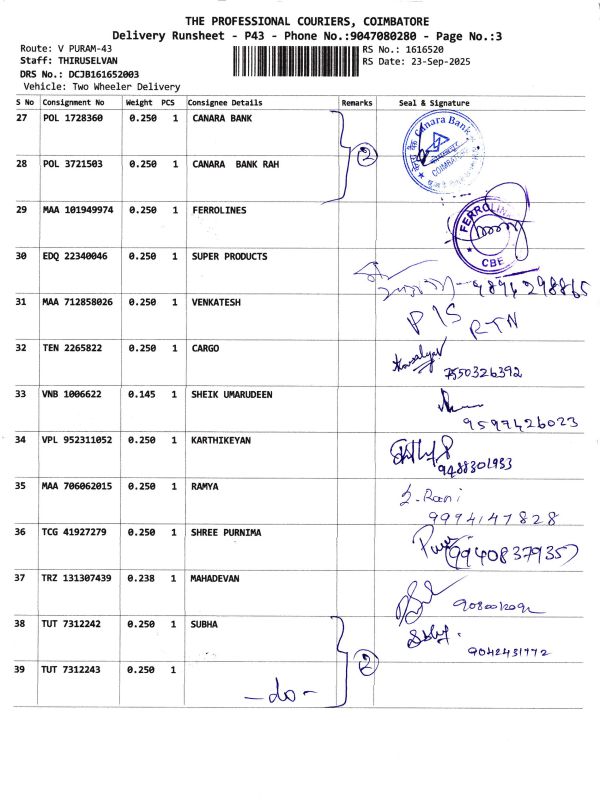 THE PROFESSIONAL COURIERS, COIMBATORE
Delivery Runsheet - P43 - Phone No.:9047080280 - Page No.:3
Route: V PURAM-43 RS No.: 1616520
Staff: THIRUSELVAN RS Date: 23-Sep-2025
DRS No.: DCJB161652003
Vehicle: Two Wheeler Delivery
S No Consignment No Weight PCS Consignee Details Remarks Seal & Signature
27 POL 1728360 0.250 1 CANARA BANK
Canara Bank
COIMBATORE
2
28 POL 3721503 0.250 1 CANARA BANK RAH
29 MAA 101949974 0.250 1 FERROLINES
CBE
30 EDQ 22340046 0.250 1 SUPER PRODUCTS
9894298865
31 MAA 712858026 0.250 1 VENKATESH
P/S
RTN
32 TEN 2265822 0.250 1 CARGO
7550326392
33 VNB 1006622 0.145 1 SHEIK UMARUDEEN
9597426023
34 VPL 952311052 0.250 1 KARTHIKEYAN
9488301933
35 MAA 706062015 0.250 1 RAMYA
Rani
9994147828
36 TCG 41927279 0.250 1 SHREE PURNIMA
9940837935
37 TRZ 131307439 0.238 1 MAHADEVAN
38 TUT 7312242 0.250 1 SUBHA
9042431772
2
39 TUT 7312243 0.250 1
-do-